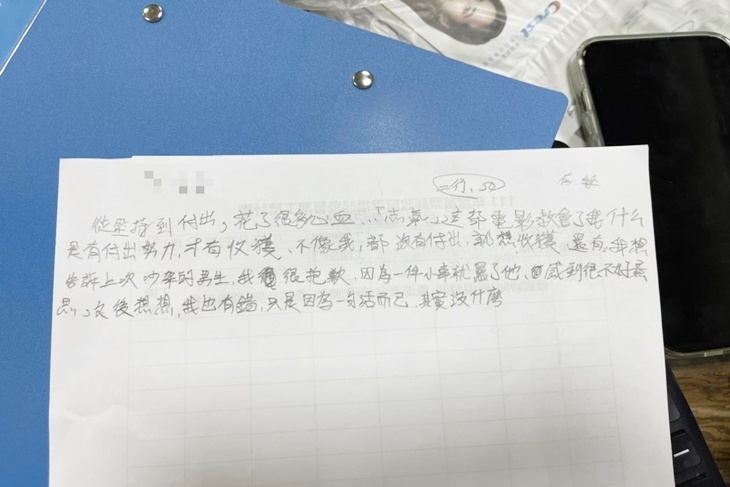 Crest
二行.50
從堅持到付出,花了很多心血.「志氣」這部電影教會了我什么
是有付出努力,才有收獲、不像我,都沒有付出,就想收獲 還有,我想
告訴上次吵架的男生,我很抱歉,因為一件小事就罵了他,感到很不好意
思,文後想想,我也有錯,只是因為一句話而已,其實沒什麼